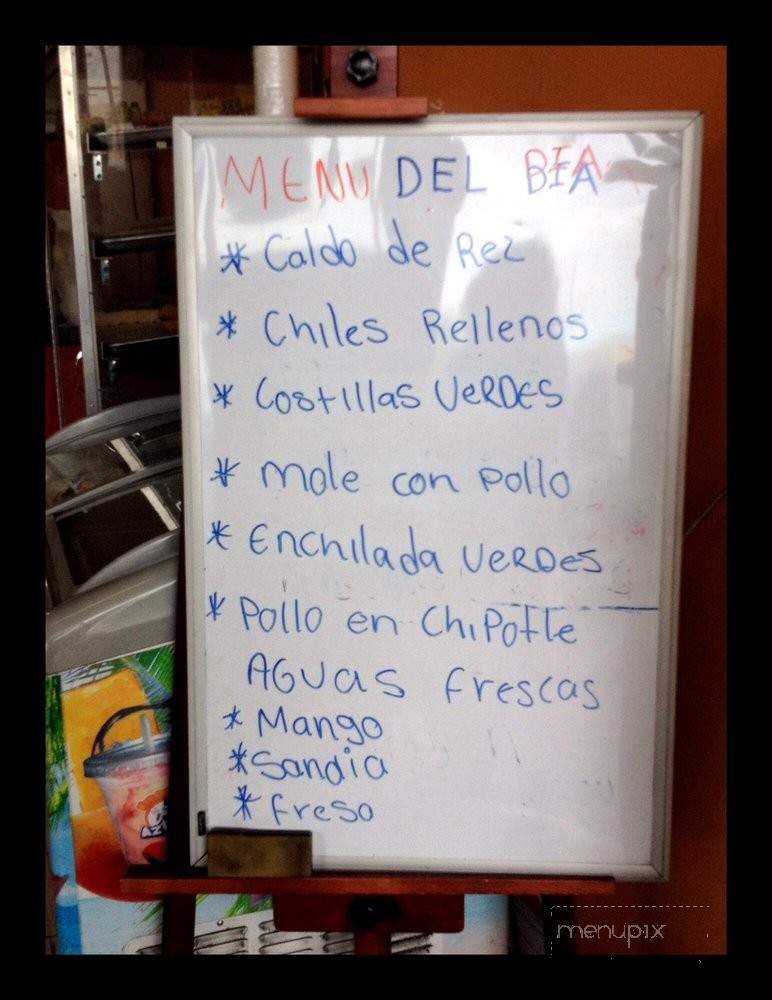 MENU DEL DIA
* Caldo de Rez
* Chiles Rellenos
* Costillas VeRDes
* Mole con pollo
* Enchilada VeRDes
* Pollo en ChiPotle
AGUas frescas
* Mango
* Sandia
* freso
menupix